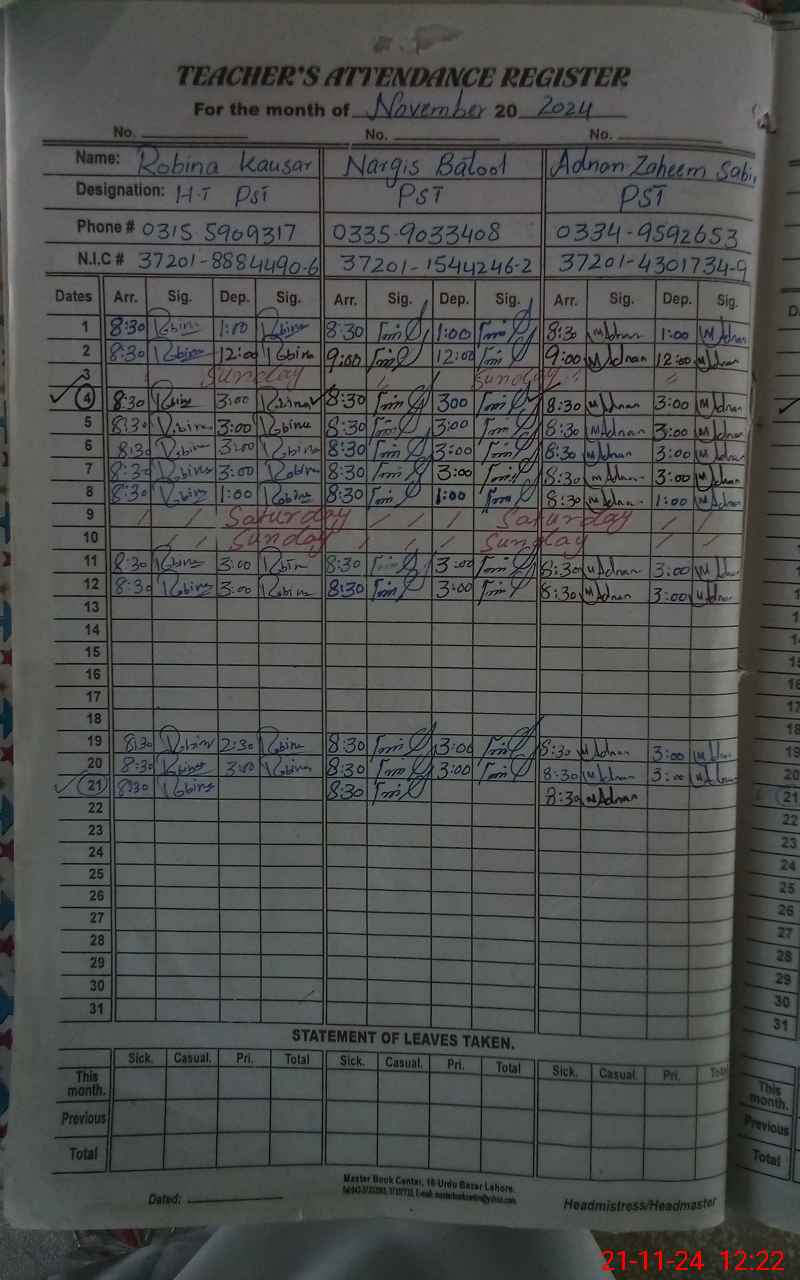 TEACHER'S ATTENDANCE REGISTER
For the month of November 20 2024
No. No. No.
Name: Robina Kausar Nargis Batool Adnan Zaheem Sabir
Designation: H.T PST PST PST
Phone # 0315 5909317 0335-9033408 0334-9592653
N.I.C # 37201-8884490-6 37201-1544246-2 37201-4301734-9
Dates Arr. Sig. Dep. Sig. Arr. Sig. Dep. Sig. Arr. Sig. Dep. Sig.
1 8:30 Robina 1:00 Robina 8:30 1:00 8:30 M Adnan 1:00 M Adnan
2 8:30 Robina 12:00 Robina 9:00 12:00 9:00 M Adnan 12:00 M Adnan
3 Sunday Sunday
4 8:30 Robina 3:00 Robina 8:30 300 8:30 M Adnan 3:00 M Adnan
5 8:30 Robina 3:00 Robina 8:30 3:00 8:30 M Adnan 3:00 M Adnan
6 8:30 Robina 3:00 Robina 8:30 3:00 8:30 M Adnan 3:00 M Adnan
7 8:30 Robina 3:00 Robina 8:30 3:00 8:30 M Adnan 3:00 M Adnan
8 8:30 Robina 1:00 Robina 8:30 1:00 8:30 M Adnan 1:00 M Adnan
9 Saturday Saturday
10 Sunday Sunday
11 8:30 Robina 3:00 Robina 8:30 3:00 8:30 M Adnan 3:00 M Adnan
12 8:30 Robina 3:00 Robina 8:30 3:00 8:30 M Adnan 3:00 M Adnan
13
14
15
16
17
18
19 8:30 Robina 2:30 Robina 8:30 3:00 8:30 M Adnan 3:00 M Adnan
20 8:30 Robina 3:00 Robina 8:30 3:00 8:30 M Adnan 3:00 M Adnan
21 8:30 Robina 8:30 8:30 M Adnan
22
23
24
25
26
27
28
29
30
31
STATEMENT OF LEAVES TAKEN.
Sick. Casual. Pri. Total Sick. Casual. Pri. Total Sick. Casual. Pri. Total
This month.
Previous
Total
Master Book Center, 16-Urdu Bazar Lahore.
Dated: Headmistress/Headmaster
21-11-24 12:22